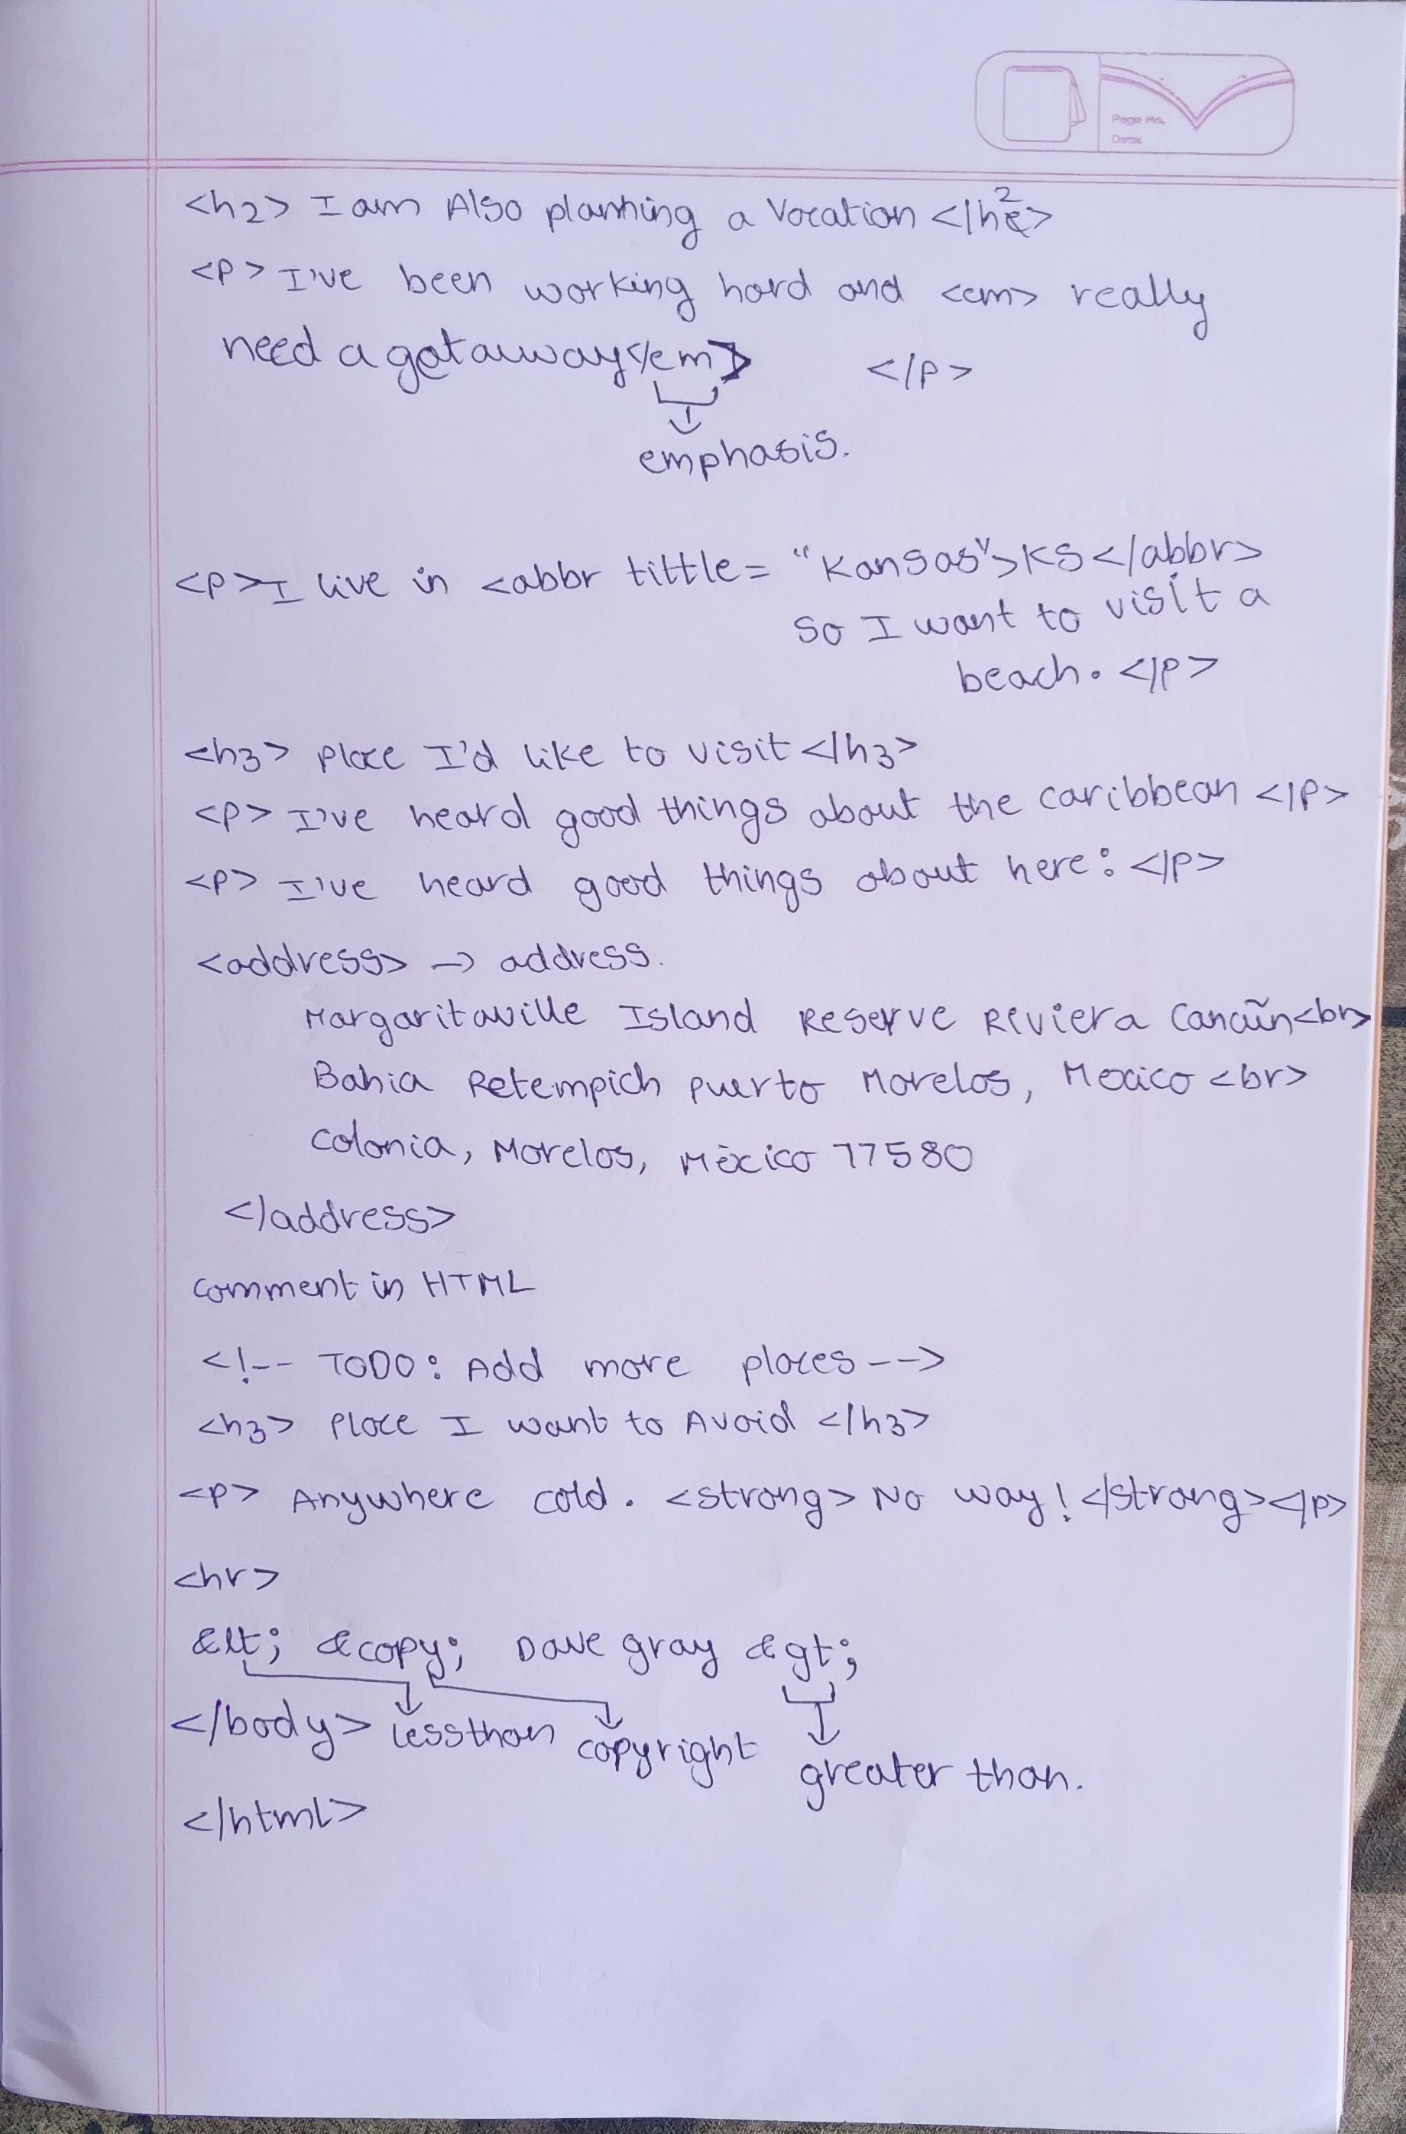 Page No.
Date:
<h2> I am Also planning a Vacation </h2>
<p> I've been working hard and <em> really
need a getaway</em> </p>
emphasis.
<p>I live in <abbr tittle= "Kansas">KS</abbr>
so I want to visit a
beach. </p>
<h3> place I'd like to visit </h3>
<p> I've heard good things about the caribbean </p>
<p> I've heard good things about here: </p>
<address> → address.
Margaritaville Island Reserve Riviera Cancũn<br>
Bahia Petempich puerto Morelos, Mexico <br>
colonia, Morelos, Mèxico 77580
</address>
comment in HTML
<!-- TODO: Add more places -->
<h3> Place I want to Avoid </h3>
<p> Anywhere cold. <strong> No way! </strong></p>
<hr>
&lt; &copy; Dave gray &gt;
</body> lessthan copyright greater than.
</html>